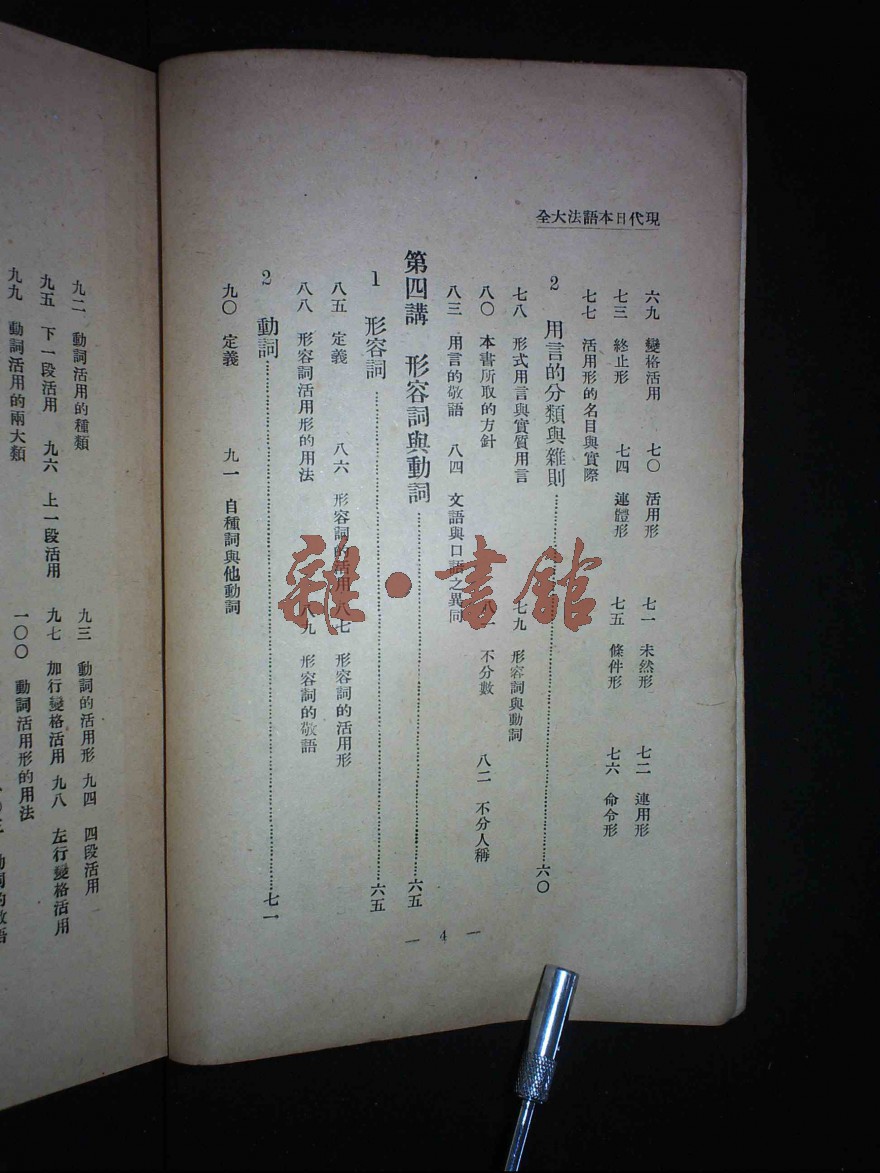 現代日本語法大全
六九 變格活用 七〇 活用形 七一 未然形 七二 連用形
七三 終止形 七四 連體形 七五 條件形 七六 命令形
七七 活用形的名目與實際
2 用言的分類與雜則 六〇
七八 形式用言與實質用言 七九 形容詞與動詞
八〇 本書所取的方針 八一 不分數 八二 不分人稱
八三 用言的敬語 八四 文語與口語之異同
第四講 形容詞與動詞 六五
1 形容詞 六五
八五 定義 八六 形容詞的活用 八七 形容詞的活用形
八八 形容詞活用形的用法 八九 形容詞的敬語
2 動詞 七一
九〇 定義 九一 自種詞與他動詞
— 4 —
九二 動詞活用的種類 九三 動詞的活用形 九四 四段活用
九五 下一段活用 九六 上一段活用 九七 加行變格活用 九八 左行變格活用
九九 動詞活用的兩大類 一〇〇 動詞活用形的用法
的敬語
雜·書館